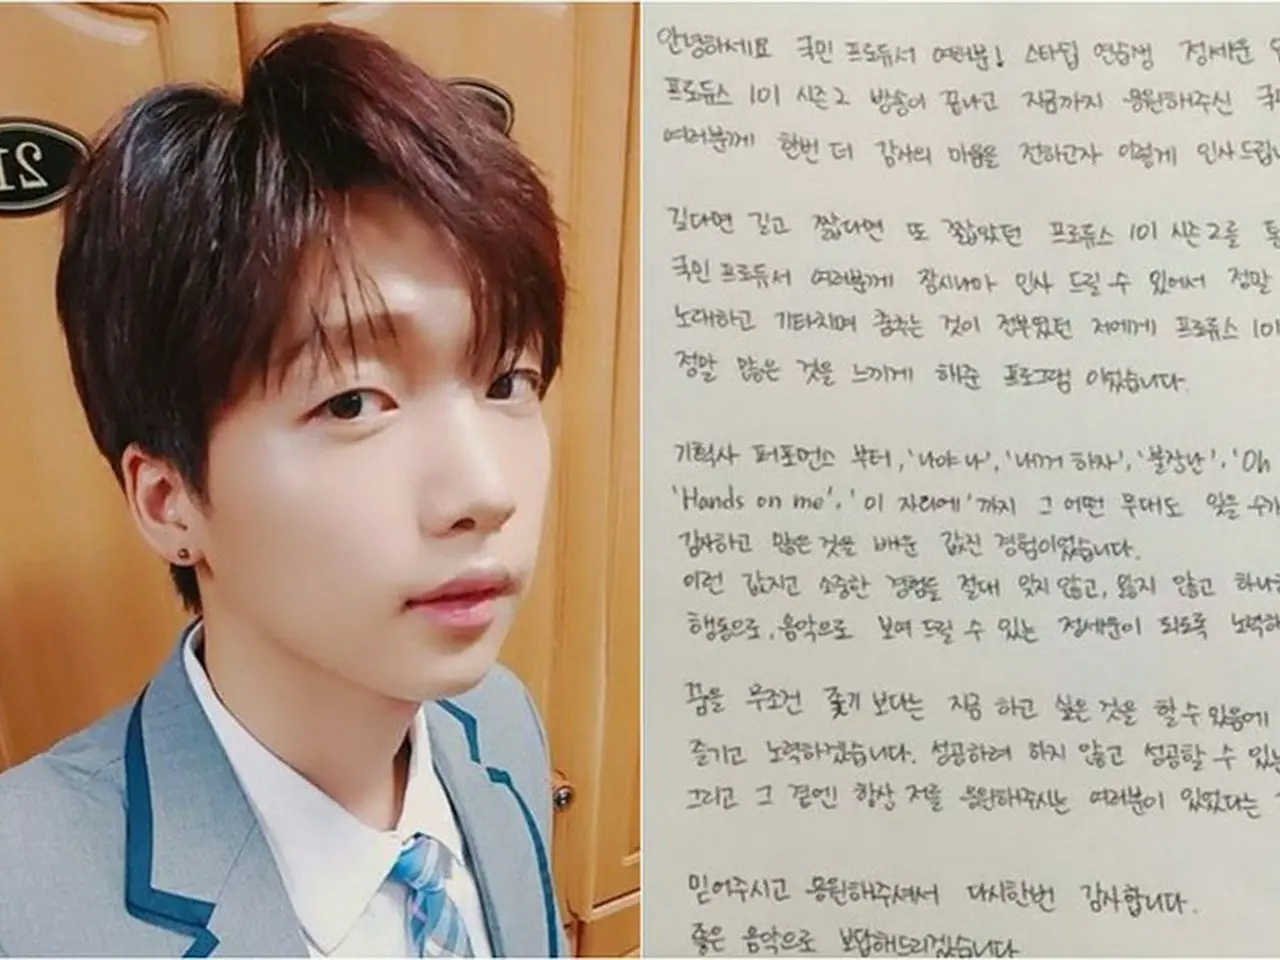 21
안녕하세요 국민 프로듀서 여러분! 스타쉽 연습생 정세운
프로듀스 101 시즌2 방송이 끝나고 지금까지 응원해주신 국
여러분께 한번 더 감사의 마음을 전하고자 이렇게 인사드립니
길다면 길고 짧다면 또 짧았던 프로듀스 101 시즌2를
국민 프로듀서 여러분께 잠시나마 인사 드릴 수 있어서 정말
노래하고 기타치며 춤추는 것이 전부였던 저에게 프로듀스 101
정말 많은 것을 느끼게 해준 프로그램 이었습니다.
기획사 퍼포먼스 부터, '나야 나', '내꺼 하자', '불장난', 'Oh
'Hands on me', '이 자리에' 까지 그 어떤 무대도 잊을 수가
감사하고 많은 것을 배운 값진 경험이었습니다.
이런 값지고 소중한 경험들 절대 잊지 않고, 잃지 않고 하나하
행동으로, 음악으로 보여 드릴 수 있는 정세운이 되도록 노력하
꿈을 무조건 좇기 보다는 지금 하고 싶은 것을 할 수 있음에
즐기고 노력하겠습니다. 성공하려 하지 않고 성공할 수 있는
그리고 그 곁엔 항상 저를 응원해주시는 여러분이 있었다는
믿어주시고 응원해주셔서 다시한번 감사합니다.
좋은 음악으로 보답해드리겠습니다